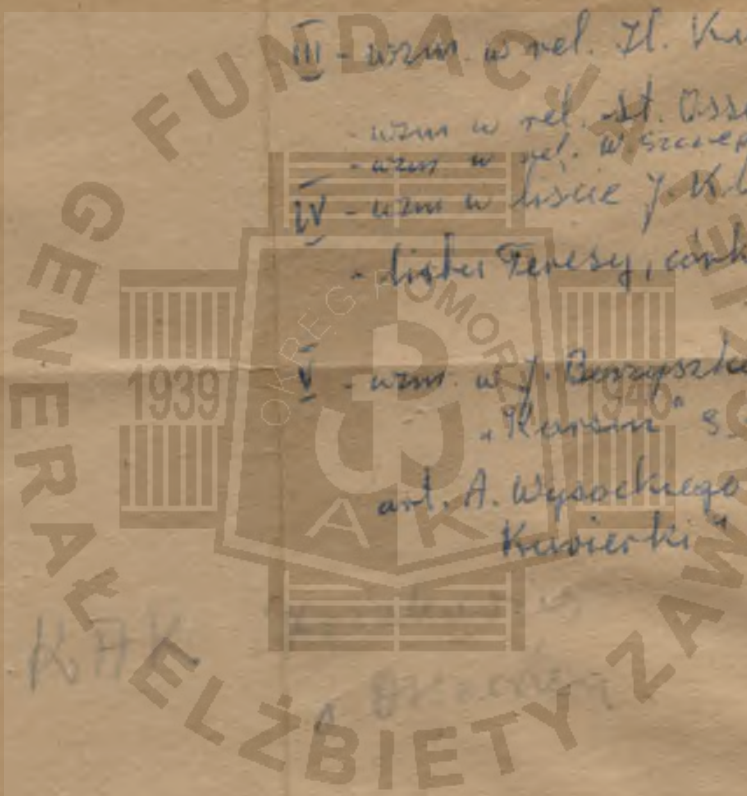 III - wzm. w rel. Il. Ku
- wzm w rel. St. Osso
- wzm w rel. W Szczep
IV - wzm w liście J. Kl
- listy Teresy, córk
V - wzm. w J. Borzyszko
"Karsin" s.
art. A. Wysockiego
Kuvierki"
KAK
FUNDACJA
GENERAŁ ELŻBIETY ZAW
OKRĘG POMOR
1939
1945
AK